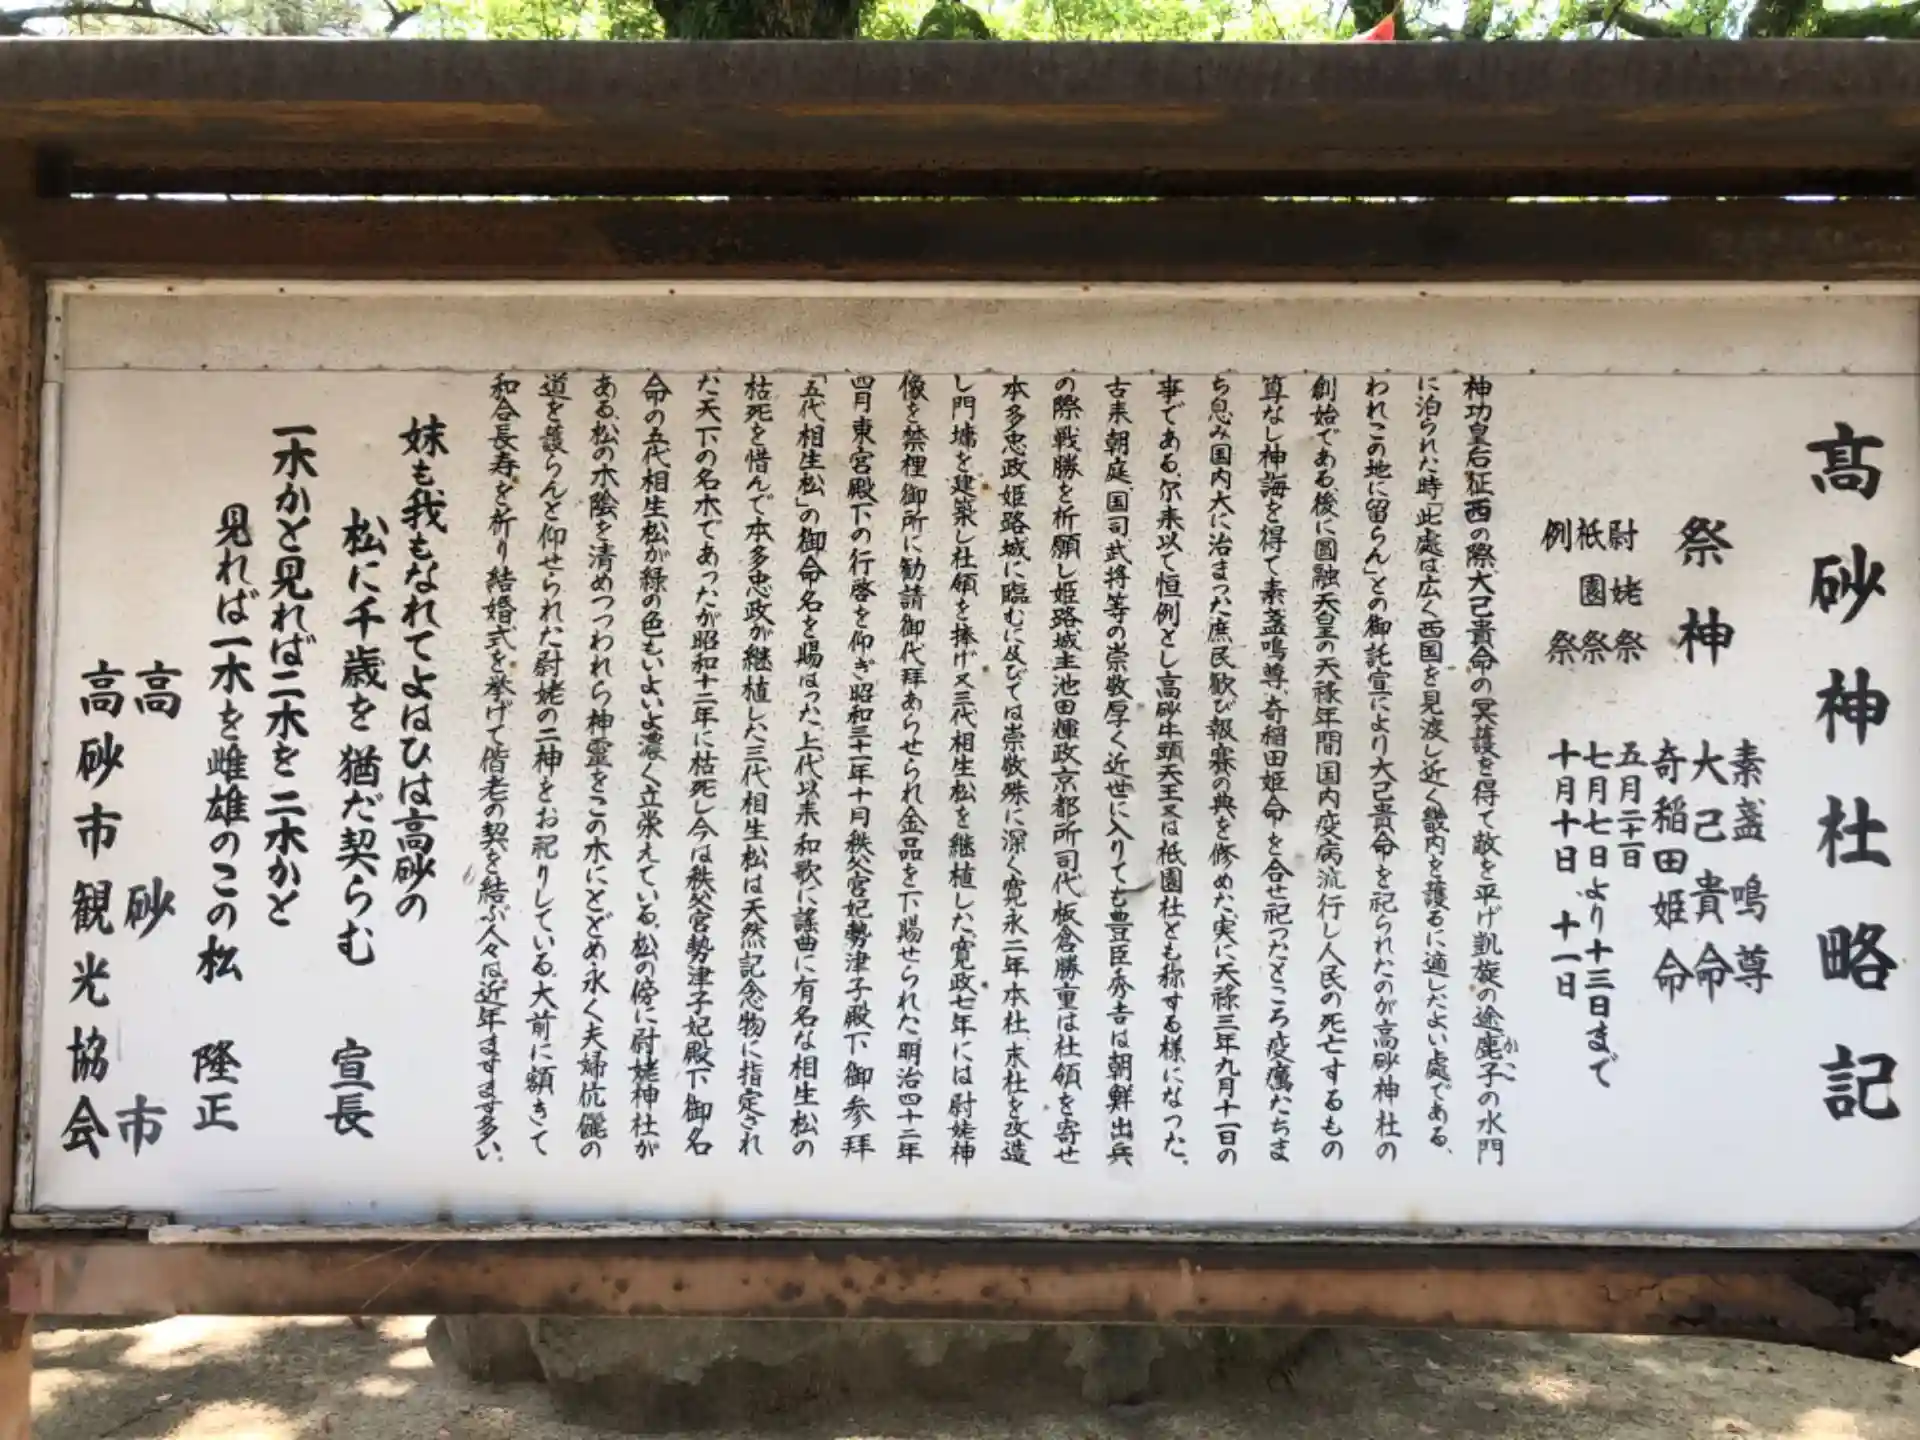 高砂神社略記
祭神
素盞鳴尊
大己貴命
奇稲田姫命
尉姥祭 五月二十一日
祇園祭 七月七日より十三日まで
例祭 十月十日、十一日
神功皇后征西の際大己貴命の冥護を得て敵を平げ凱旋の途鹿子の水門
かこ
に泊られた時「此處は広く西国を見渡し近く畿内を護るに適したよい處である、
われこの地に留らん」との御託宣により大己貴命を祀られたのが高砂神社の
創始である、後に圓融天皇の天禄年間国内疫病流行し人民の死亡するもの
算なし神誨を得て素盞鳴尊、奇稲田姫命を合せ祀つたところ疫癘たちま
ち息み国内大に治まつた庶民歓び報賽の典を修めた、実に天禄三年九月十一日の
事である、尓来以て恒例とし高砂牛頭天王又は祇園社とも称する様になつた。
古来朝庭、国司武将等の崇敬厚く近世に入りても豊臣秀吉は朝鮮出兵
の際戦勝を祈願し姫路城主池田輝政京都所司代板倉勝重は社領を寄せ
本多忠政姫路城に臨むに及びては崇敬殊に深く寛永二年本社、末社を改造
し門墉を建築し社領を捧げ又三代相生松を継植した、寛政七年には尉姥神
像を禁裡御所に勧請御代拝あらせられ金品を下賜せられた、明治四十二年
四月東宮殿下の行啓を仰ぎ昭和三十一年十月秩父宮妃勢津子殿下御参拝
「五代相生松」の御命名を賜はつた、上代以来和歌に謡曲に有名な相生松の
枯死を惜んで本多忠政が継植した三代相生松は天然記念物に指定され
た天下の名木であつたが昭和十二年に枯死し今は秩父宮勢津子妃殿下御名
命の五代相生松が緑の色もいよいよ濃く立栄えている、松の傍に尉姥神社が
ある、松の木陰を清めつつわれら神霊をこの木にとどめ永く夫婦伉儷の
道を護らんと仰せられた尉姥の二神をお祀りしている、大前に額きて
和合長寿を祈り結婚式を挙げて偕老の契を結ぶ人々は近年ますます多い。
妹も我もなれてよはひは高砂の
松に千歳を猶だ契らむ 宣長
一木かと見れば二木を二木かと
見れば一木を雌雄のこの松 隆正
高砂市
高砂市観光協会